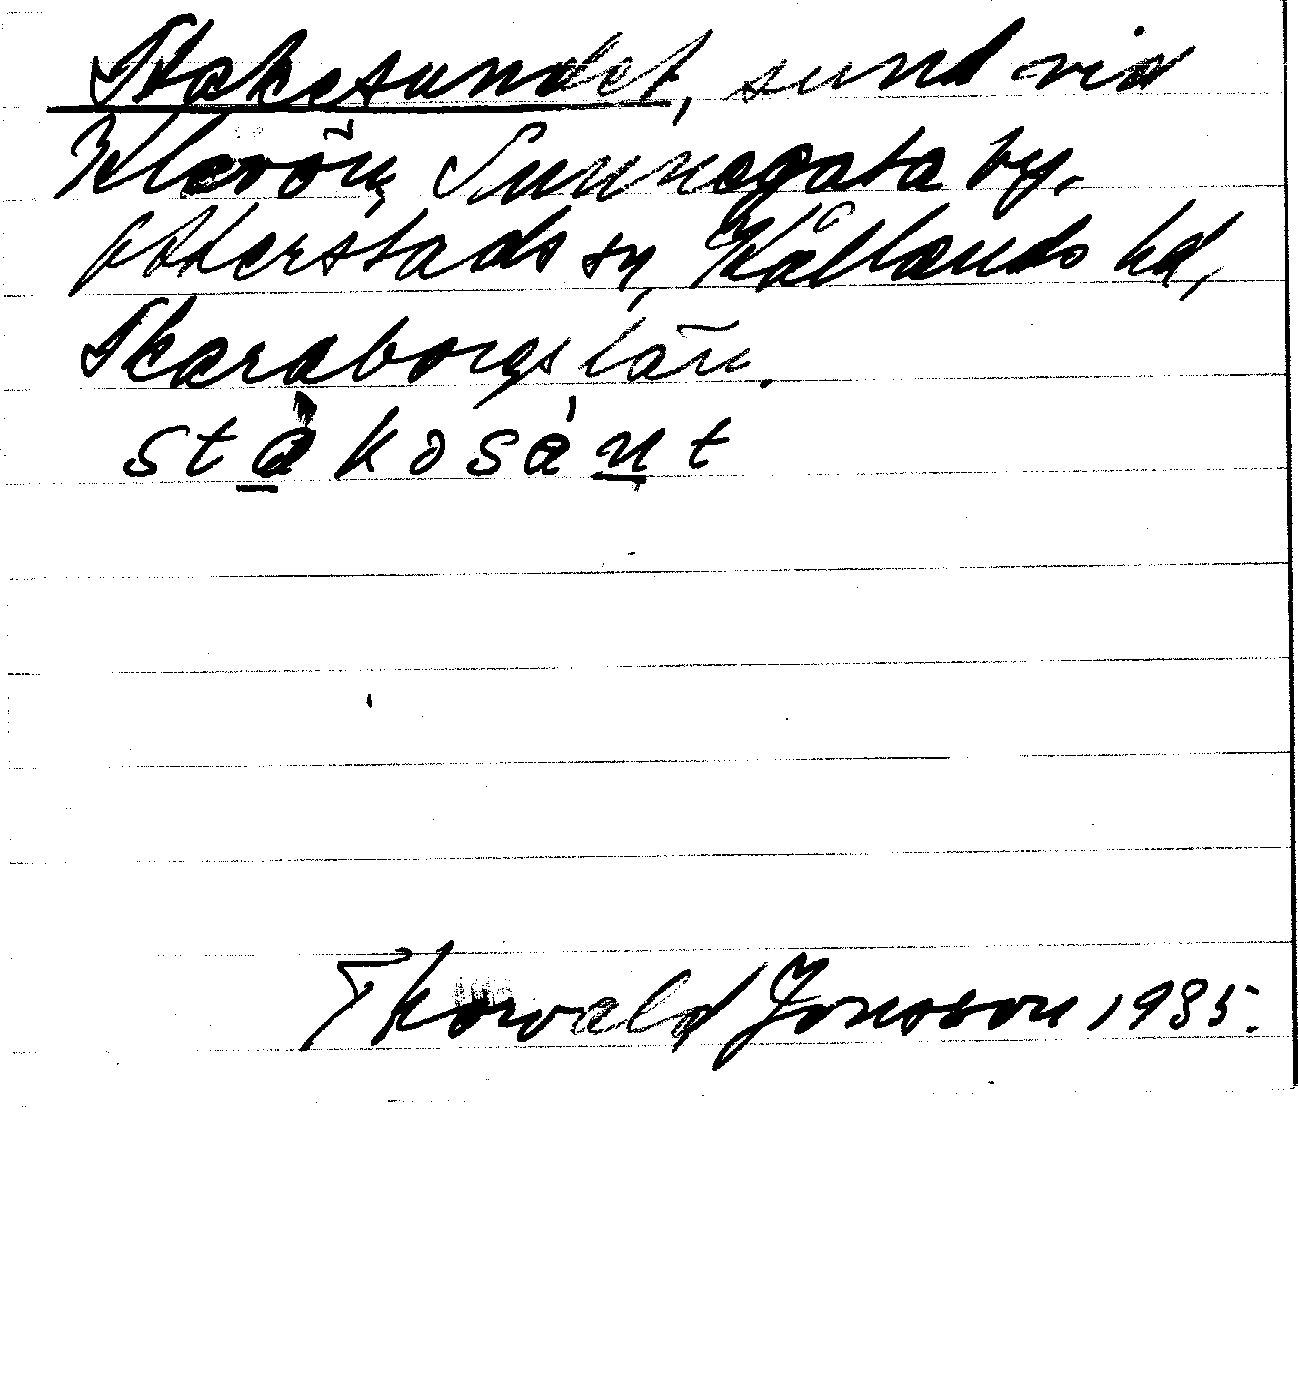 Stakesundet, sund vid
Klavön, Sunnegata by,
Otterstads sn, Kållands hd,
Skaraborgs län.
stàkosánt
Thorvald Jonsson 1935.